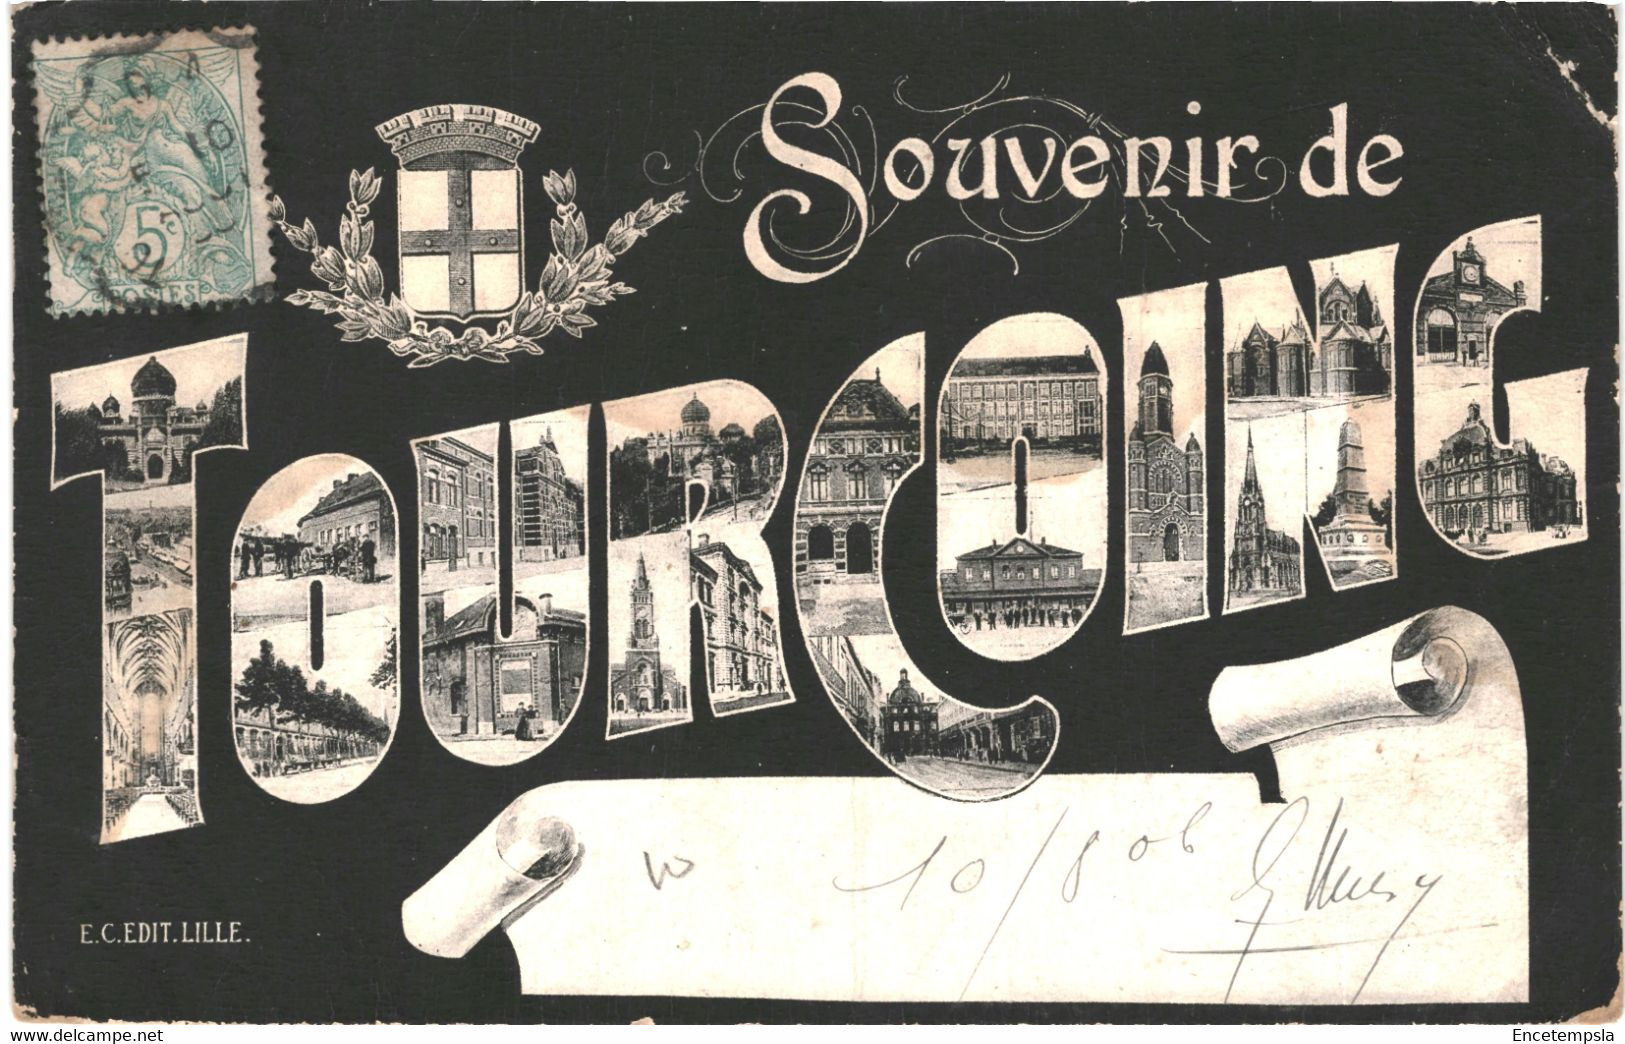 5c
POSTES
Souvenir de
TOURCOING
10/8 06
E.C.EDIT.LILLE.
www.delcampe.net
Encetempsla